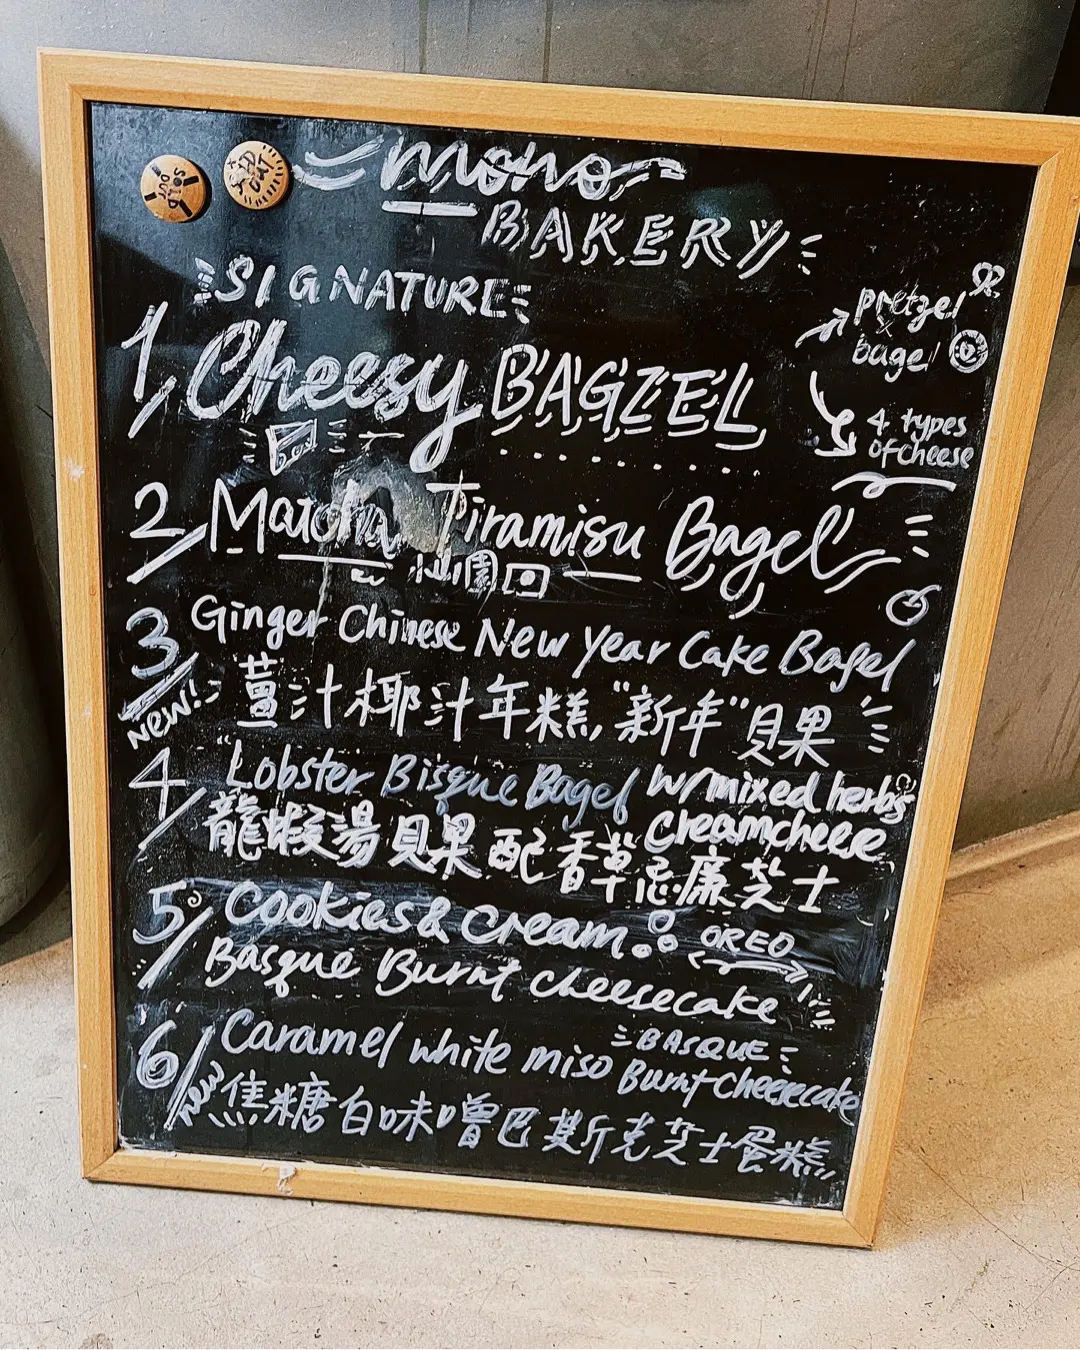 SOLD OUT
SOLD OUT
mono
BAKERY
SIGNATURE
1, Cheesy BAGZEL
pretzel
x
bagel
4 types
of cheese
2, Matcha Tiramisu Bagel
3, Ginger Chinese New Year Cake Bagel
NEW!
薑汁椰汁年糕, "新年" 貝果
4, "Lobster Bisque Bagel w/ mixed herbs
creamcheese
龍蝦湯貝果配香草忌廉芝士
5, Cookies & Cream. OREO
Basque Burnt Cheesecake
6, Caramel white miso BASQUE
Burnt Cheesecake
new
焦糖白味噌巴斯克芝士蛋糕